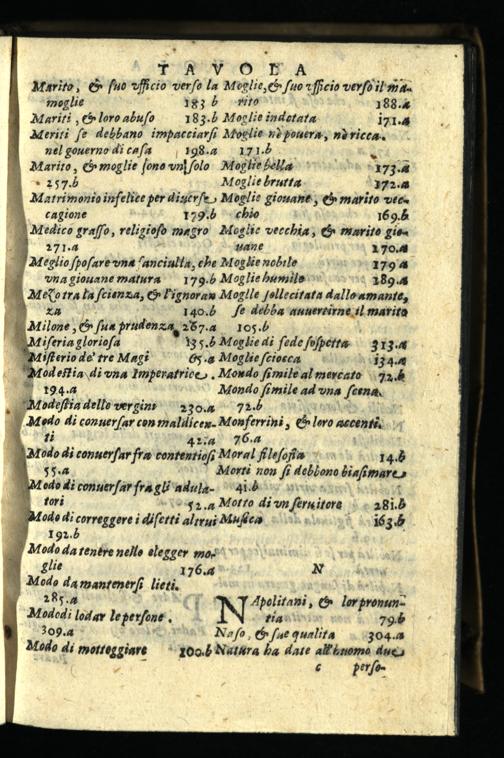 TAVOLA
Marito, & suo vfficio verso la
moglie 183 b
Mariti, & loro abuso 183.b
Meriti se debbano impacciarsi
nel governo di casa 198.a
Marito, & moglie sono vn solo
257.b
Matrimonio infelice per diuerse
cagione 179.b
Medico grasso, religioso magro
271.a
Meglio sposare vna fanciulla, che
vna giouane matura 179.b
Mezo tra la scienza, & l'ignoran
za 140.b
Milone, & sua prudenza 267.a
Miseria gloriosa 135.b
Misterio de' tre Magi 65.a
Modestia di vna Imperatrice.
194.a
Modestia delle vergini 230.a
Modo di conuersar con maldicen-
ti 42.a
Modo di conuersar fra contentiosi
55.a
Modo di conuersar fra gli adula-
tori 52.a
Modo di correggere i difetti altrui
192.b
Modo da tenere nello elegger mo-
glie 176.a
Modo da mantenersi lieti.
285.a
Modo di lodar le persone.
309.a
Modo di motteggiare 100.b
Moglie, & suo vfficio verso il ma-
rito 188.a
Moglie indotata 171.a
Moglie nè pouera, nè ricca.
171.b
Moglie bella 173.a
Moglie brutta 172.a
Moglie giouane, & marito vec-
chio 169.b
Moglie vecchia, & marito gio-
uane 170.a
Moglie nobile 179.a
Moglie humile 189.a
Moglie sollecitata dallo amante,
se debba auuertirne il marito
105.b
Moglie di fede sospetta 313.a
Moglie sciocca 134.a
Mondo simile al mercato 72.b
Mondo simile ad vna scena.
72.b
Monferrini, & loro accenti.
76.a
Moral filosofia 14.b
Morti non si debbono biasimare
41.b
Motto di vn seruitore 281.b
Musica 163.b
N
NApolitani, & lor pronun-
tia 79.b
Naso, & sue qualita 304.a
Natura ha date all'huomo due
c perso-